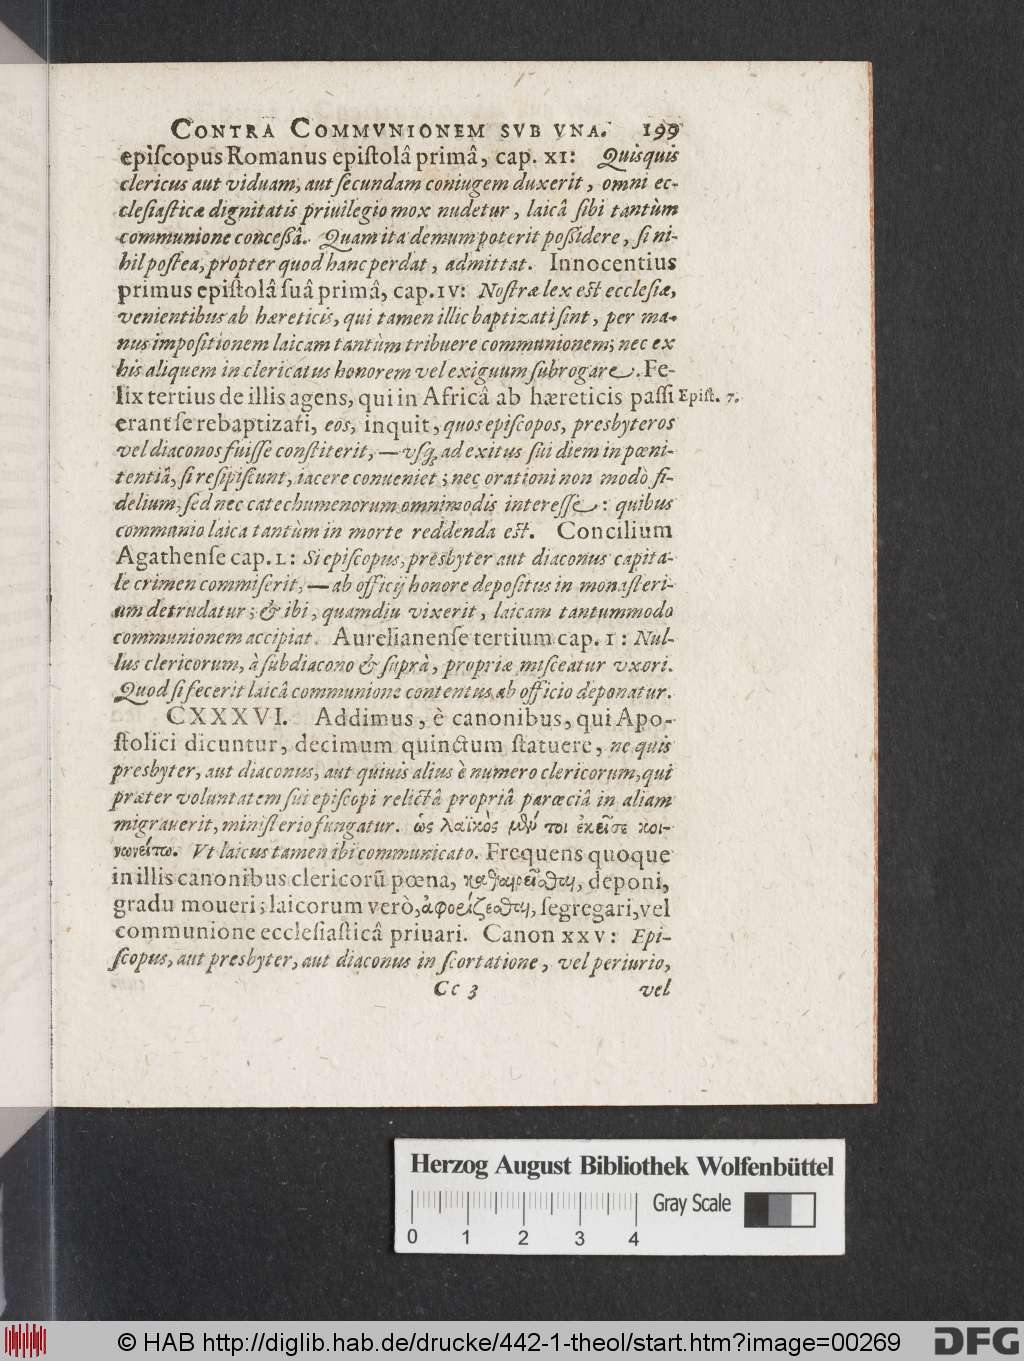 CONTRA COMMVNIONEM SVB VNA. 199
episcopus Romanus epistolâ primâ, cap. XI: Quisquis
clericus aut viduam, aut secundam coniugem duxerit, omni ec-
clesiasticæ dignitatis priuilegio mox nudetur, laicâ sibi tantùm
communione concessâ. Quam ita demum poterit possidere, si ni-
hil postea, propter quod hanc perdat, admittat. Innocentius
primus epistolâ suâ primâ, cap. IV: Nostræ lex est ecclesiæ,
venientibus ab hæreticis, qui tamen illic baptizati sint, per ma-
nus impositionem laicam tantùm tribuere communionem; nec ex
his aliquem in clericatus honorem vel exiguum subrogare. Fe-
lix tertius de illis agens, qui in Africâ ab hæreticis passi Epist. 7.
erant se rebaptizari, eos, inquit, quos episcopos, presbyteros
vel diaconos fuisse constiterit, — vsq; ad exitus sui diem in pœni-
tentiâ, si resipiscunt, iacere conueniet; nec orationi non modò fi-
delium, sed nec catechumenorum omnimodis interesse: quibus
communio laica tantùm in morte reddenda est. Concilium
Agathense cap. L: Si episcopus, presbyter aut diaconus capita-
le crimen commiserit, — ab officij honore depositus in monasteri-
um detrudatur; & ibi, quamdiu vixerit, laicam tantummodo
communionem accipiat. Aurelianense tertium cap. I: Nul-
lus clericorum, à subdiacono & suprà, propriæ misceatur vxori.
Quod si fecerit laicâ communione contentus ab officio deponatur.
CXXXVI. Addimus, è canonibus, qui Apo-
stolici dicuntur, decimum quinctum statuere, ne quis
presbyter, aut diaconus, aut quiuis alius è numero clericorum, qui
præter voluntatem sui episcopi relictâ propriâ parœciâ in aliam
migrauerit, ministerio fungatur. ὡς λαϊκὸς μέν τοι ἐκεῖσε κοι-
νωνείτω. Vt laicus tamen ibi communicato. Frequens quoque
in illis canonibus clericorũ pœna, καθαιρεῖσθαι, deponi,
gradu moueri; laicorum verò, ἀφορίζεσθαι, segregari, vel
communione ecclesiasticâ priuari. Canon XXV: Epi-
scopus, aut presbyter, aut diaconus in scortatione, vel periurio,
Cc 3 vel
Herzog August Bibliothek Wolfenbüttel
Gray Scale
0 1 2 3 4
© HAB http://diglib.hab.de/drucke/442-1-theol/start.htm?image=00269 DFG